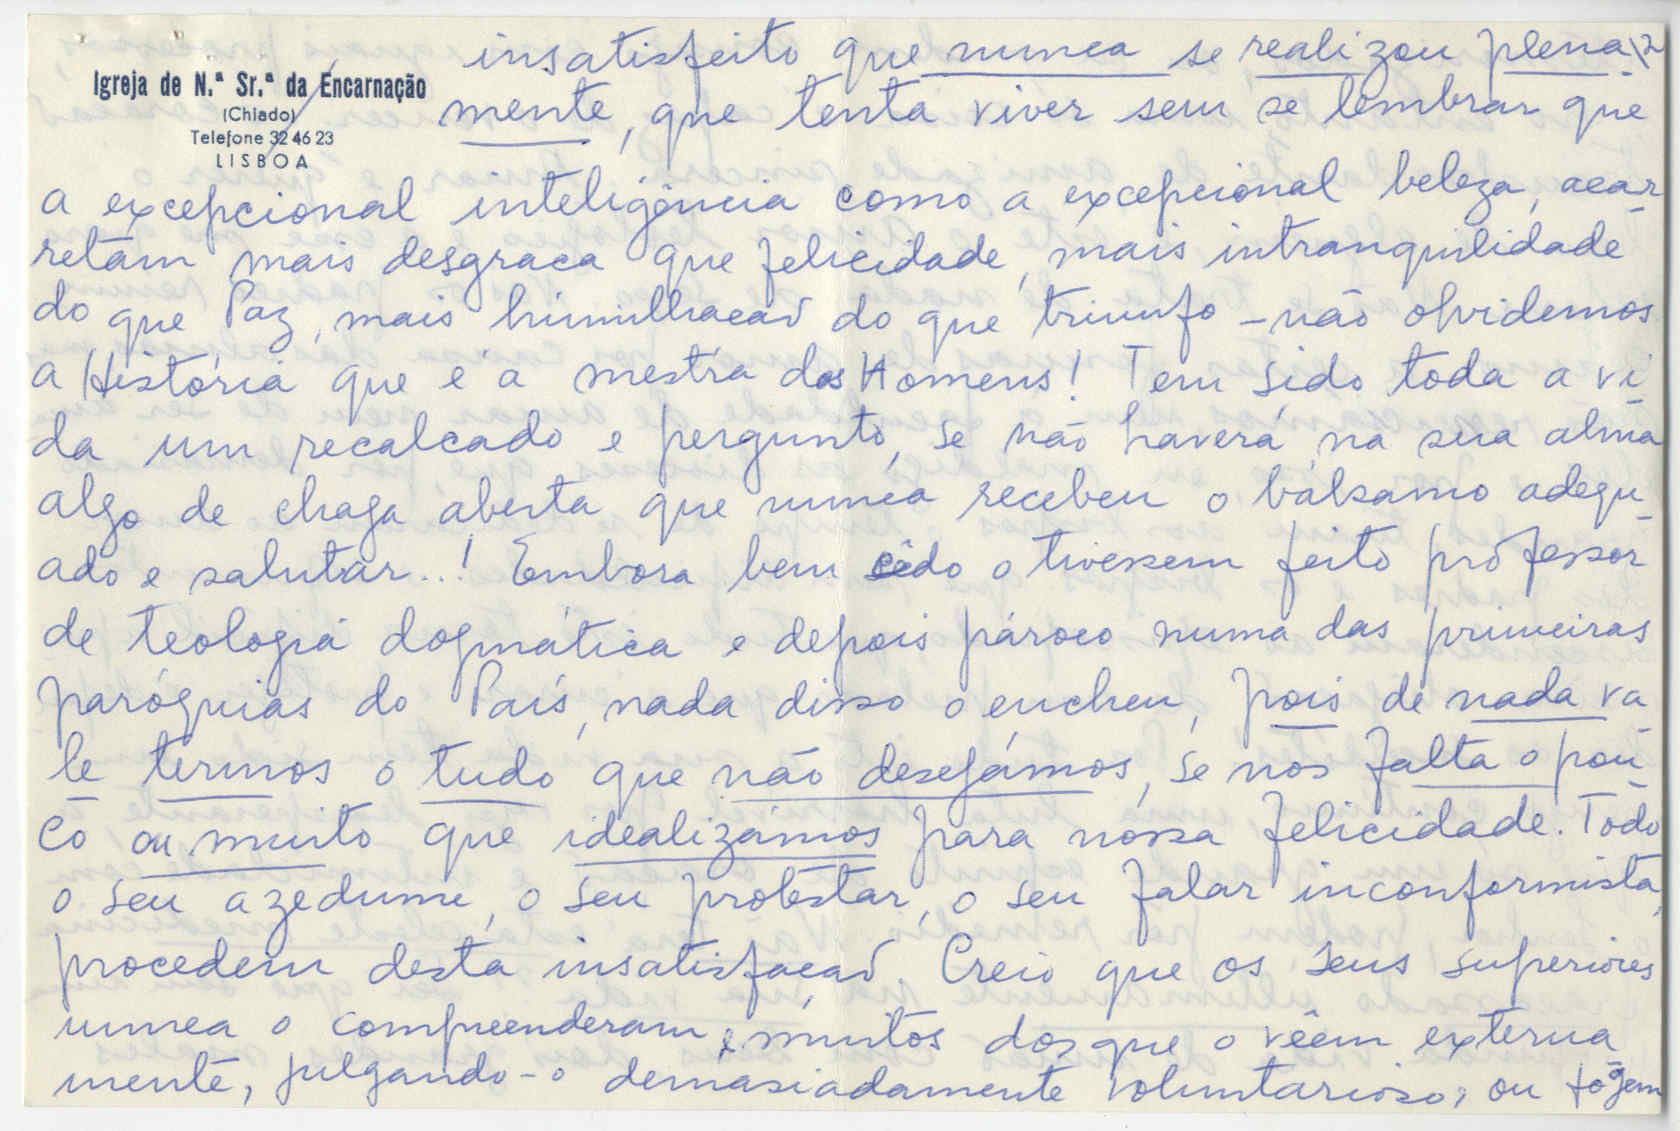 Igreja de N.ª Sr.ª da Encarnação
(Chiado)
Telefone 32 46 23
LISBOA
2
insatisfeito que nunca se realizou plena
mente, que tenta viver sem se lembrar que
a excepcional inteligência como a excepcional beleza, acar-
retam mais desgraça que felicidade, mais intranquilidade
do que Paz, mais humilhação do que triunfo – não olvidemos
a História que é a mestra dos Homens! Tem sido toda a vi-
da um recalcado e pergunto, se não haverá na sua alma
algo de chaga aberta que nunca recebeu o bálsamo adequ-
ado e salutar..! Embora bem cêdo o tivessem feito professor
de teologia dogmática e depois pároco numa das primeiras
paróquias do País, nada disso o encheu, pois de nada va-
le termos o tudo que não desejámos, se nos falta o pou-
co ou muito que idealizámos para nossa felicidade. Todo
o seu azedume, o seu protestar, o seu falar inconformista,
procedem desta insatisfação. Creio que os seus superiores
nunca o compreenderam e muitos dos que o vêem externa-
mente, julgando-o demasiadamente voluntarioso, ou fogem